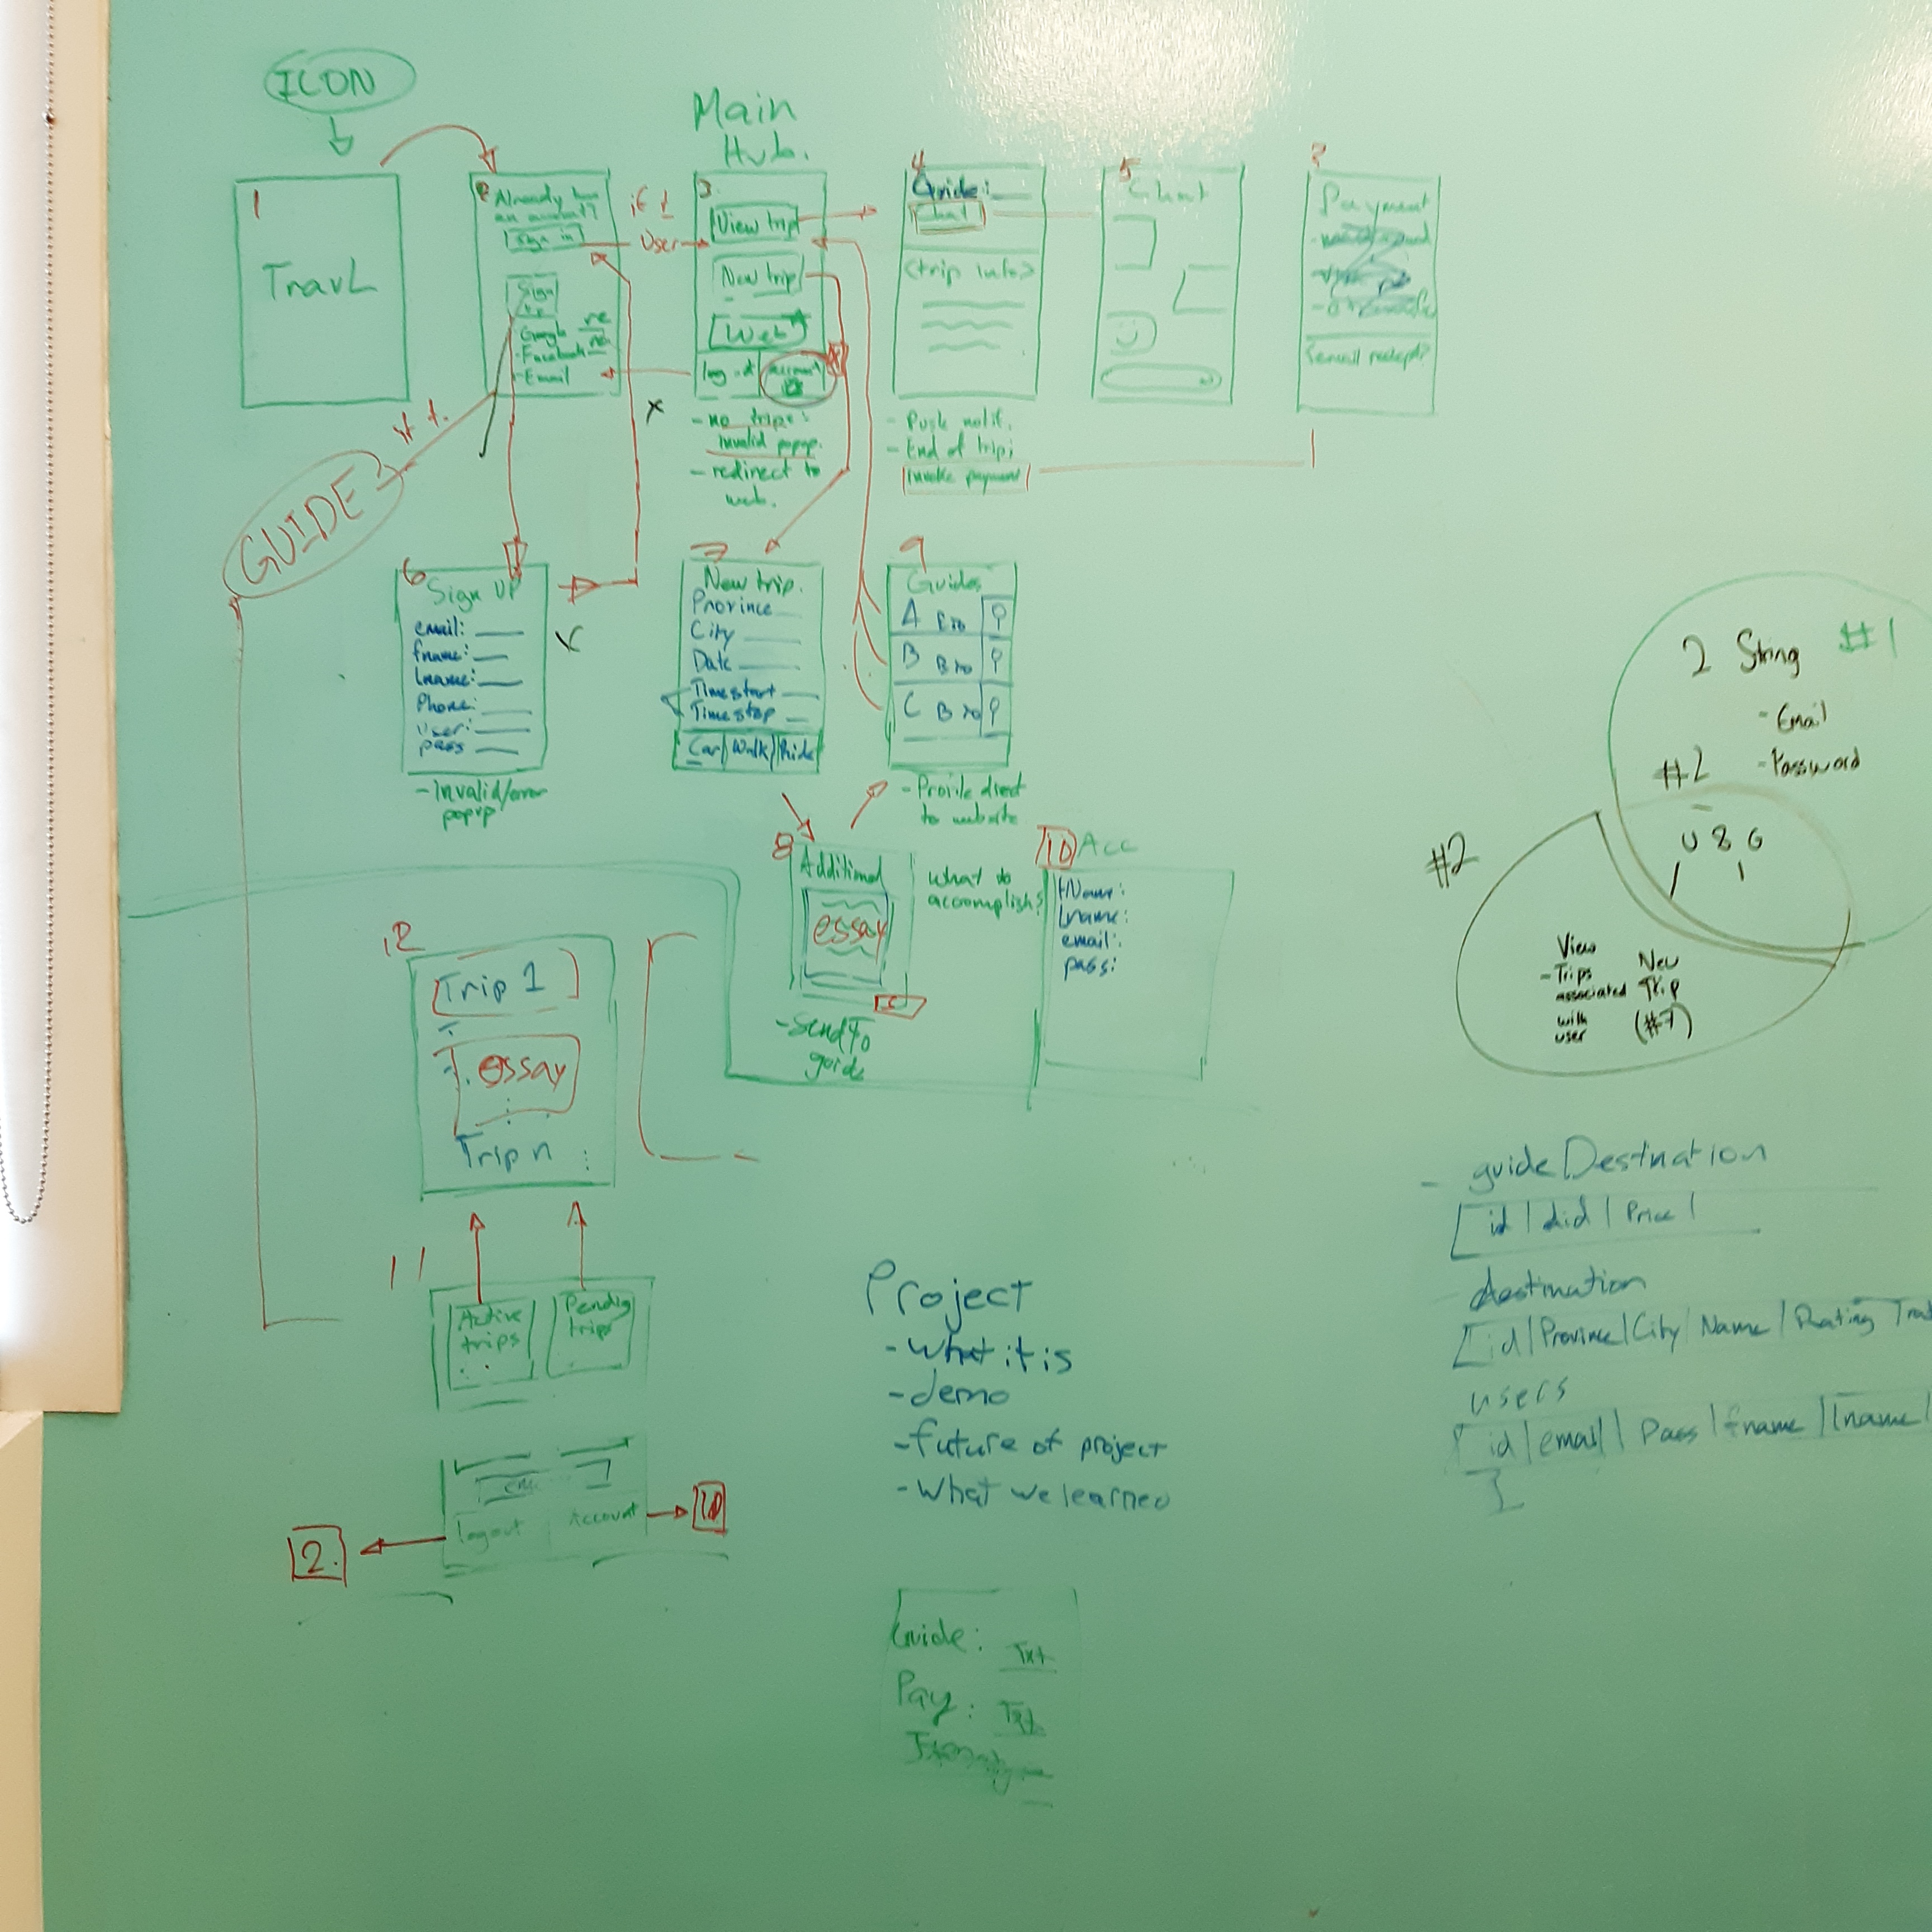 ICON
1
TravL
2
Already have
an account?
Sign in
Sign
Up
- Google
- Facebook
- Email
if 1
User
Main
Hub.
3
View trip
New trip
Web
log out
account
- no trips:
Invalid popup.
- redirect to
web.
4
Guide:
Chat
<trip info>
- Push notif.
- End of trip;
Invoke payment
5
Chat
?
Payment
GUIDE
6
Sign UP
email:
fname:
Lname:
Phone:
User:
pass
- Invalid/error
popup
x
7
New trip.
Province
City
Date
Timestart
Timestop
Car | Walk | Ride
9
Guides
A Bio
B Bio
C Bio
to website
8
Additional
essay
what to
accomplish?
- Send To
guide
10 Acc
fName:
Lname:
email:
pass:
12
Trip 1
essay
Trip n
11
Active
trips
Pending
trips
logout
Account
2
10
Project
- What it is
- demo
- future of project
- What we learned
Guide: Txt
Pay: Txt
2 String #1
- Email
- Password
#2
U & G
#2
View
- Trips
associated
with
user
New
Trip
(#7)
- guideDestination
id | did | Price |
destination
id | Province | City | Name | Rating
users
id | email | Pass | fname | lname |